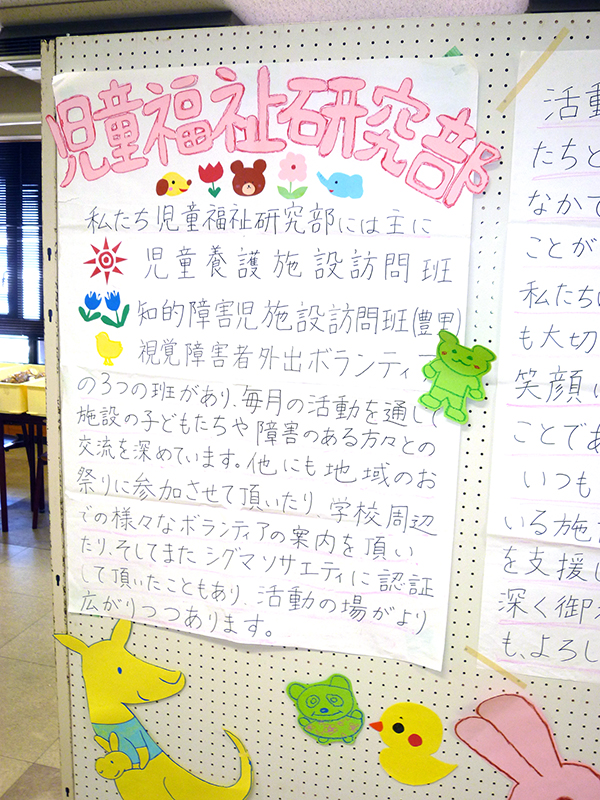 児童福祉研究部
私たち児童福祉研究部には主に
児童養護施設訪問班
知的障害児施設訪問班(豊里
視覚障害者外出ボランティ
の3つの班があり、毎月の活動を通して
施設の子どもたちや障害のある方々との
交流を深めています。他にも地域のお
祭りに参加させて頂いたり、学校周辺
での様々なボランティアの案内を頂い
たり、そしてまたシグマソサエティに認証
して頂いたこともあり、活動の場がより
広がりつつあります。
活動
たちと
なかで
ことが
私たち
も大切
笑顔
ことであ
いつも
いる施
を支援し
深く御
も、よろし